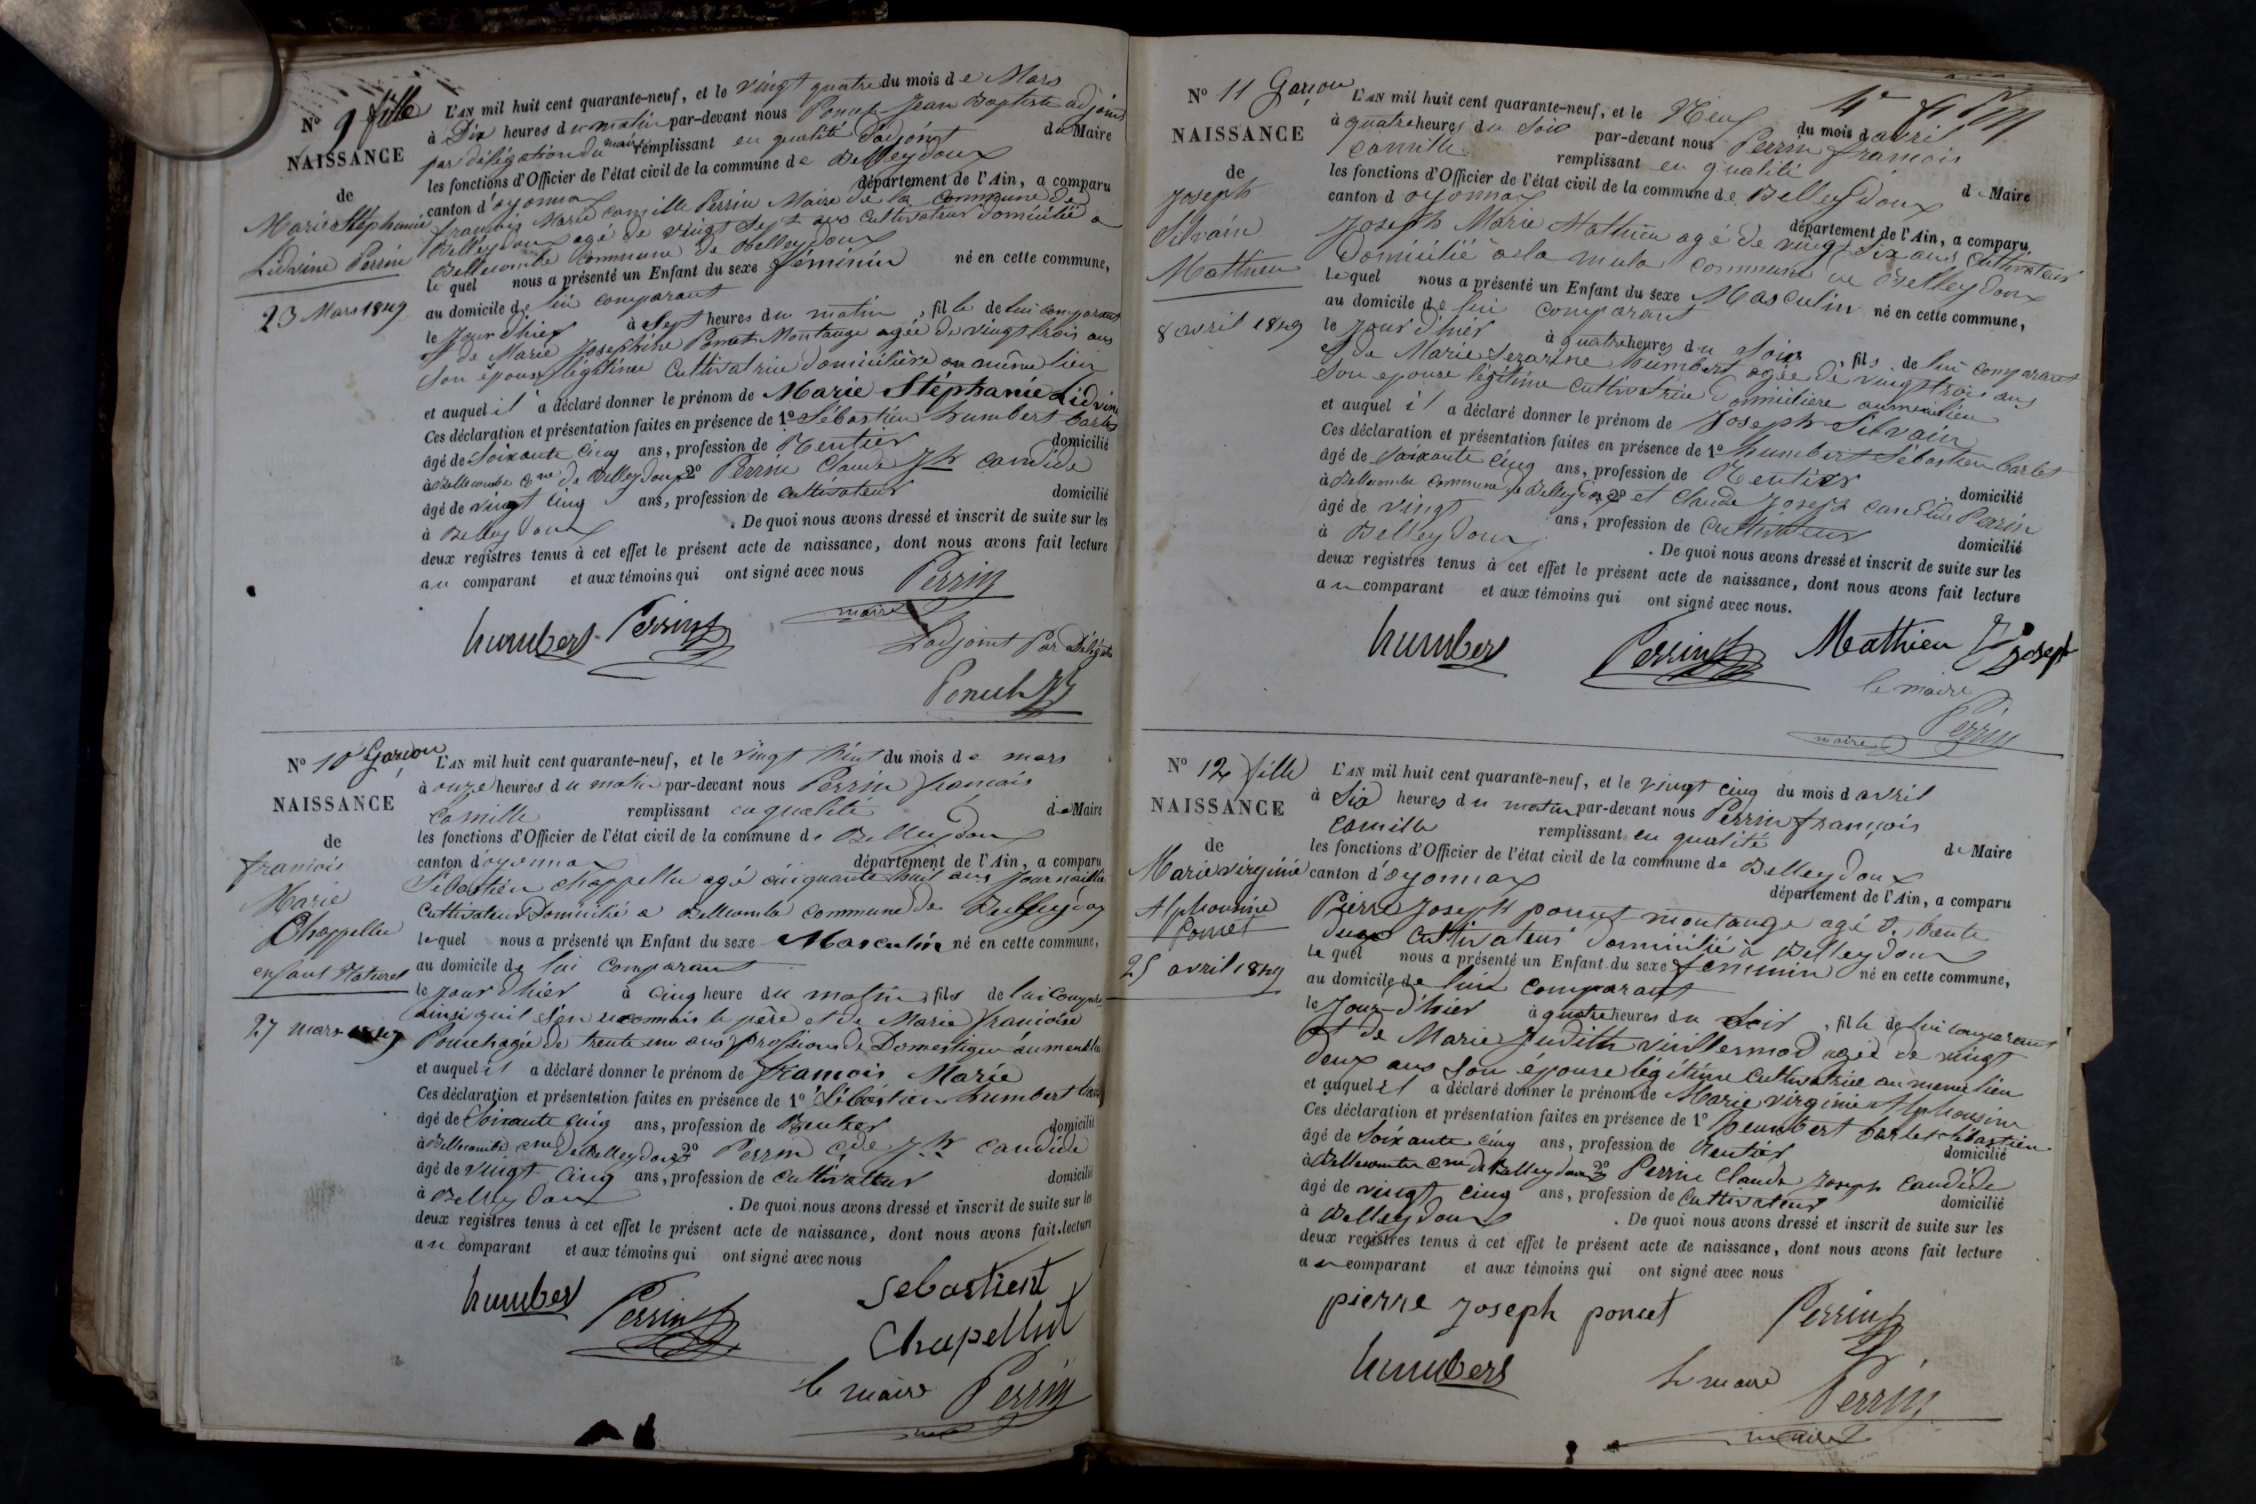 N° 9 fille
NAISSANCE
de
Marie Stéphanie
Lidvine Perrin
23 Mars 1849
L'AN mil huit cent quarante-neuf, et le vingt quatre du mois de Mars
à Dix heures du matin par-devant nous Poncet Jean Baptiste adjoint
par délégation du maire remplissant en qualité d'adjoint du Maire
les fonctions d'Officier de l'état civil de la commune de Belleydoux
canton d'oyonnax département de l'Ain, a comparu
françois Marie camille Perrin Maire de la commune de
Belleydoux agé de vingt sept ans cultivateur domicilié a
Bellecombe commune de Belleydoux
le quel nous a présenté un Enfant du sexe féminin né en cette commune,
au domicile de lui comparant
le jour d'hier à sept heures du matin, fille de lui comparant
et de Marie Josephine Poncet Montange agée de vingt trois ans
son épouse légitime cultivatrice domicilière au même lieu
et auquel il a déclaré donner le prénom de Marie Stéphanie Lidvine
Ces déclaration et présentation faites en présence de 1° Sébastien humbert barlet
âgé de soixante cinq ans, profession de Rentier domicilié
à Bellecombe Cne de Belleydoux 2° Perrin Claude Jh candide
âgé de vingt cinq ans, profession de cultivateur domicilié
à Belleydoux. De quoi nous avons dressé et inscrit de suite sur les
deux registres tenus à cet effet le présent acte de naissance, dont nous avons fait lecture
au comparant et aux témoins qui ont signé avec nous
Perrin
maire
humbert Perrin
L'adjoint Par Délégation
Poncet
N° 10 Garçon
NAISSANCE
de
françois
Marie
Chappellu
enfant Naturel
27 mars 1849
L'AN mil huit cent quarante-neuf, et le vingt huit du mois de mars
à onze heures du matin par-devant nous Perrin françois
Camille remplissant en qualité de Maire
les fonctions d'Officier de l'état civil de la commune de Belleydoux
canton d'oyonnax département de l'Ain, a comparu
Sébastien chappellu agé cinquante huit ans Journailler
cultivateur Domicilié a Bellecombe commune de Belleydoux
lequel nous a présenté un Enfant du sexe Masculin né en cette commune,
au domicile de lui comparant
le jour d'hier à cinq heure du matin, fils de lui comparant
ainsi quil s'en reconnais le père et de Marie françoise
Poncet agée de trente un ans profession de Domestique au même lieu
et auquel il a déclaré donner le prénom de françois Marie
Ces déclaration et présentation faites en présence de 1° Sébastien humbert barlet
âgé de soixante cinq ans, profession de Rentier domicilié
à Bellecombe cne de Belleydoux 2° Perrin Cde Jh candide
âgé de vingt cinq ans, profession de cultivateur domicilié
à Belleydoux. De quoi nous avons dressé et inscrit de suite sur les
deux registres tenus à cet effet le présent acte de naissance, dont nous avons fait lecture
au comparant et aux témoins qui ont signé avec nous
humbert Perrin Sebastient
Chapellut
le maire Perrin
N° 11 Garçon
NAISSANCE
de
Joseph
Silvain
Mathieu
8 avril 1849
L'AN mil huit cent quarante-neuf, et le Neuf du mois d avril
à quatre heures du soir par-devant nous Perrin françois
camille remplissant en qualité de Maire
les fonctions d'Officier de l'état civil de la commune de Belleydoux
canton d oyonnax département de l'Ain, a comparu
Joseph Marie Mathieu agé de vingt six ans cultivateur
domicilié à la mula commune de Belleydoux
lequel nous a présenté un Enfant du sexe Masculin né en cette commune,
au domicile de lui comparant
le jour d'hier à quatre heures du soir, fils de lui comparant
et de Marie Sezarine humbert agée de vingt trois ans
son epouse légitime cultivatrice domicilière au même lieu
et auquel il a déclaré donner le prénom de Joseph Silvain
Ces déclaration et présentation faites en présence de 1° humbert Sébastien barlet
âgé de soixante cinq ans, profession de Rentier domicilié
à Bellecombe commune de Belleydoux 2° et Claude Joseph candide Perrin
âgé de vingt ans, profession de cultivateur domicilié
à Belleydoux. De quoi nous avons dressé et inscrit de suite sur les
deux registres tenus à cet effet le présent acte de naissance, dont nous avons fait lecture
au comparant et aux témoins qui ont signé avec nous.
humbert Perrin Mathieu Joseph
le maire
Perrin
maire
N° 12 fille
NAISSANCE
de
Marie virginie
Alphonsine
Poncet
25 avril 1849
L'AN mil huit cent quarante-neuf, et le vingt cinq du mois d avril
à Six heures du matin par-devant nous Perrin françois
camille remplissant en qualité de Maire
les fonctions d'Officier de l'état civil de la commune de Belleydoux
canton d'oyonnax département de l'Ain, a comparu
Pierre Joseph poncet montange agé de trente
deux cultivateur domicilié à Belleydoux
le quel nous a présenté un Enfant du sexe femminin né en cette commune,
au domicile de lui comparant
le Jour d'hier à quatre heures du soir, fille de lui comparant
et de Marie Judith vuillermod agée de vingt
deux ans son épouse légitime cultivatrice au meme lieu
et auquel il a déclaré donner le prénom de Marie virginie Alphonsine
Ces déclaration et présentation faites en présence de 1° humbert barlet Sébastien
âgé de soixante cinq ans, profession de Rentier domicilié
à Bellecombe cne de Belleydoux 2° Perrin Claude Joseph candide
âgé de vingt cinq ans, profession de cultivateur domicilié
à Belleydoux. De quoi nous avons dressé et inscrit de suite sur les
deux registres tenus à cet effet le présent acte de naissance, dont nous avons fait lecture
au comparant et aux témoins qui ont signé avec nous
pierre Joseph poncet Perrin
humbert le maire Perrin
maire